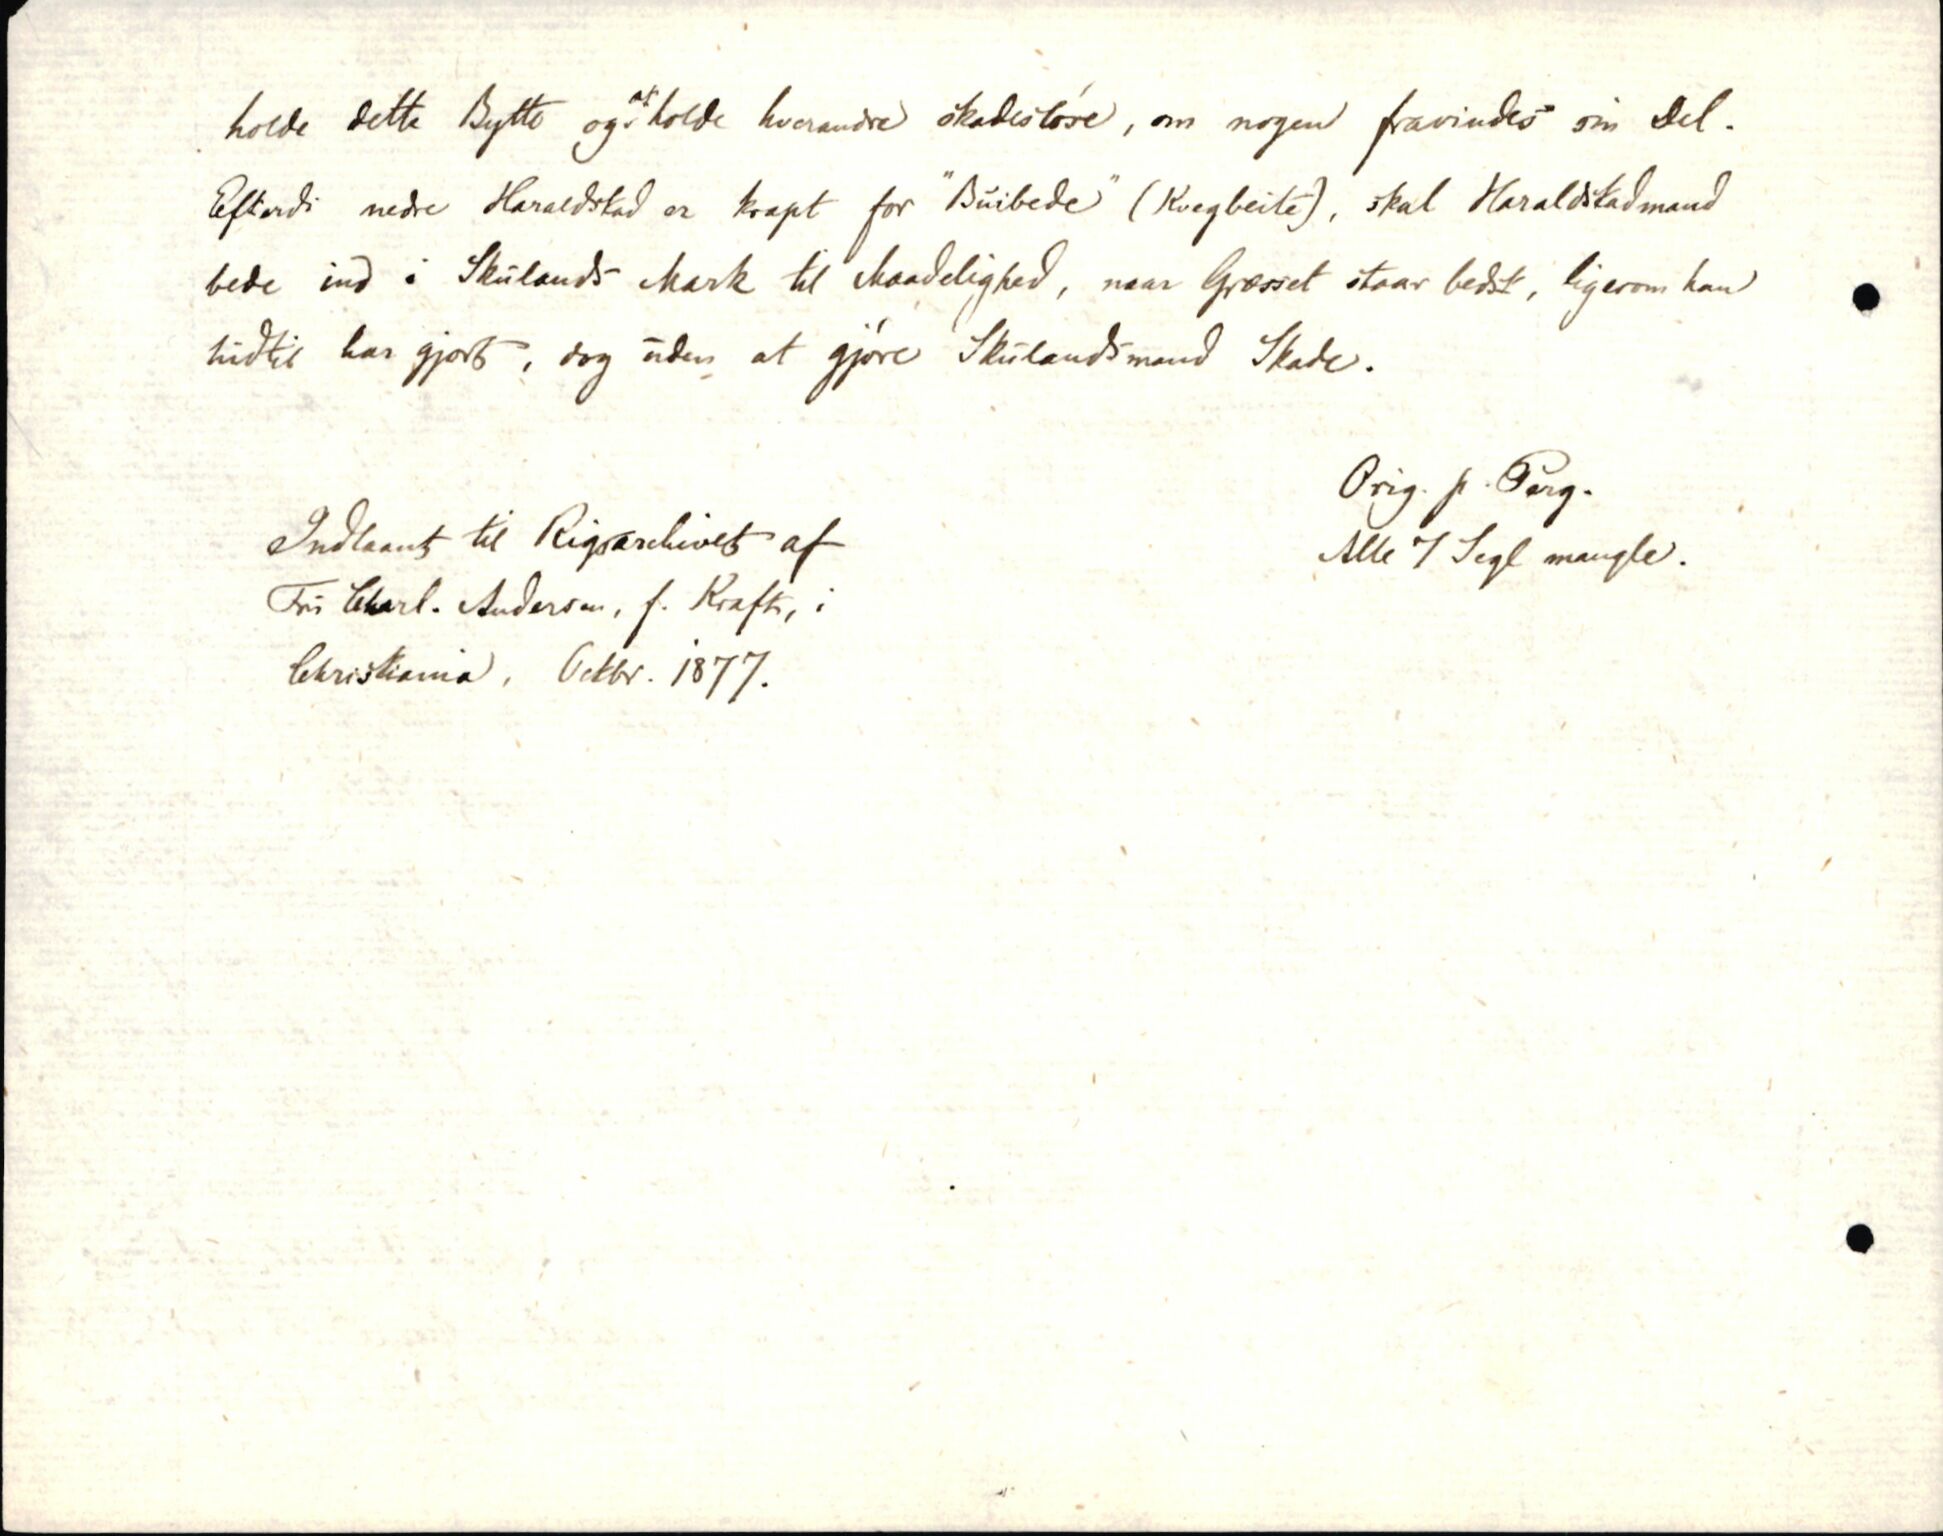 holde dette Bytte og at holde hverandre skadesløse, om nogen fravindes sin Del.
Efterdi nedre Haraldstad er knapt for "Buibede" (Kvegbeite), skal Haraldstadmand
bede ind i Skulands Mark til Maadelighed, naar Græsset staar bedst, ligesom han
hidtil har gjort, dog uden at gjøre Skulandsmand Skade.
Orig. p. Perg.
Alle 7 Segl mangle.
Indlaant til Rigsarchivet af
Fru Charl. Andersen, f. Kraft, i
Christiania, Octbr. 1877.